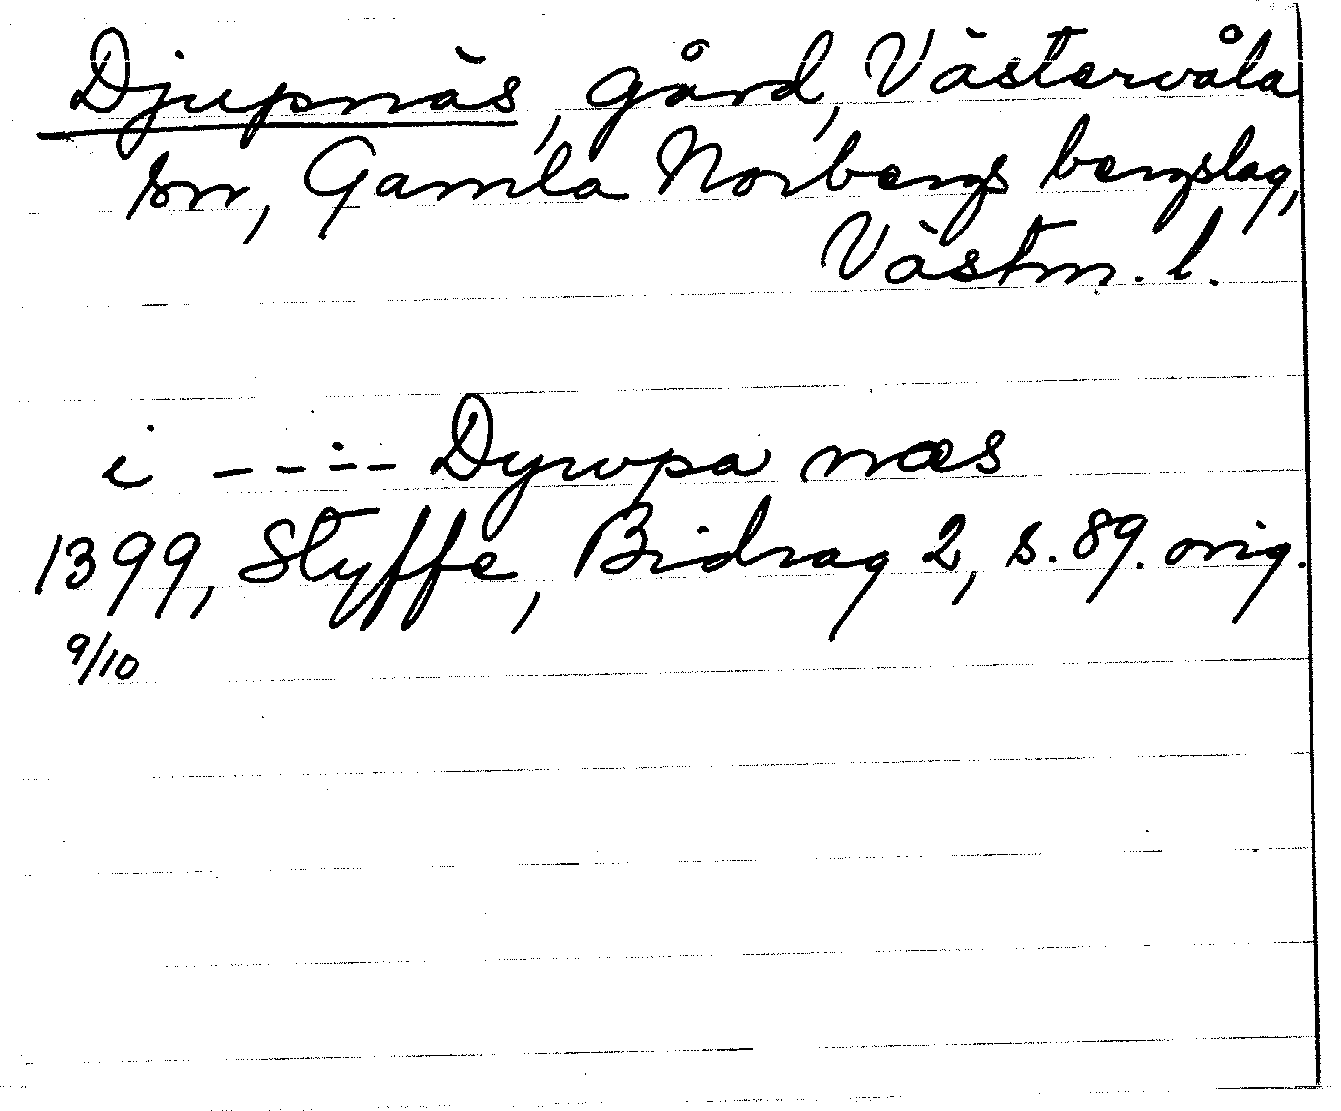 Djupnäs, gård, Västervåla
sn, Gamla Norbergs bergslag,
Västm. l.
i ---- Dywpa næs
1399, Styffe, Bidrag 2, s. 89. orig.
9/10